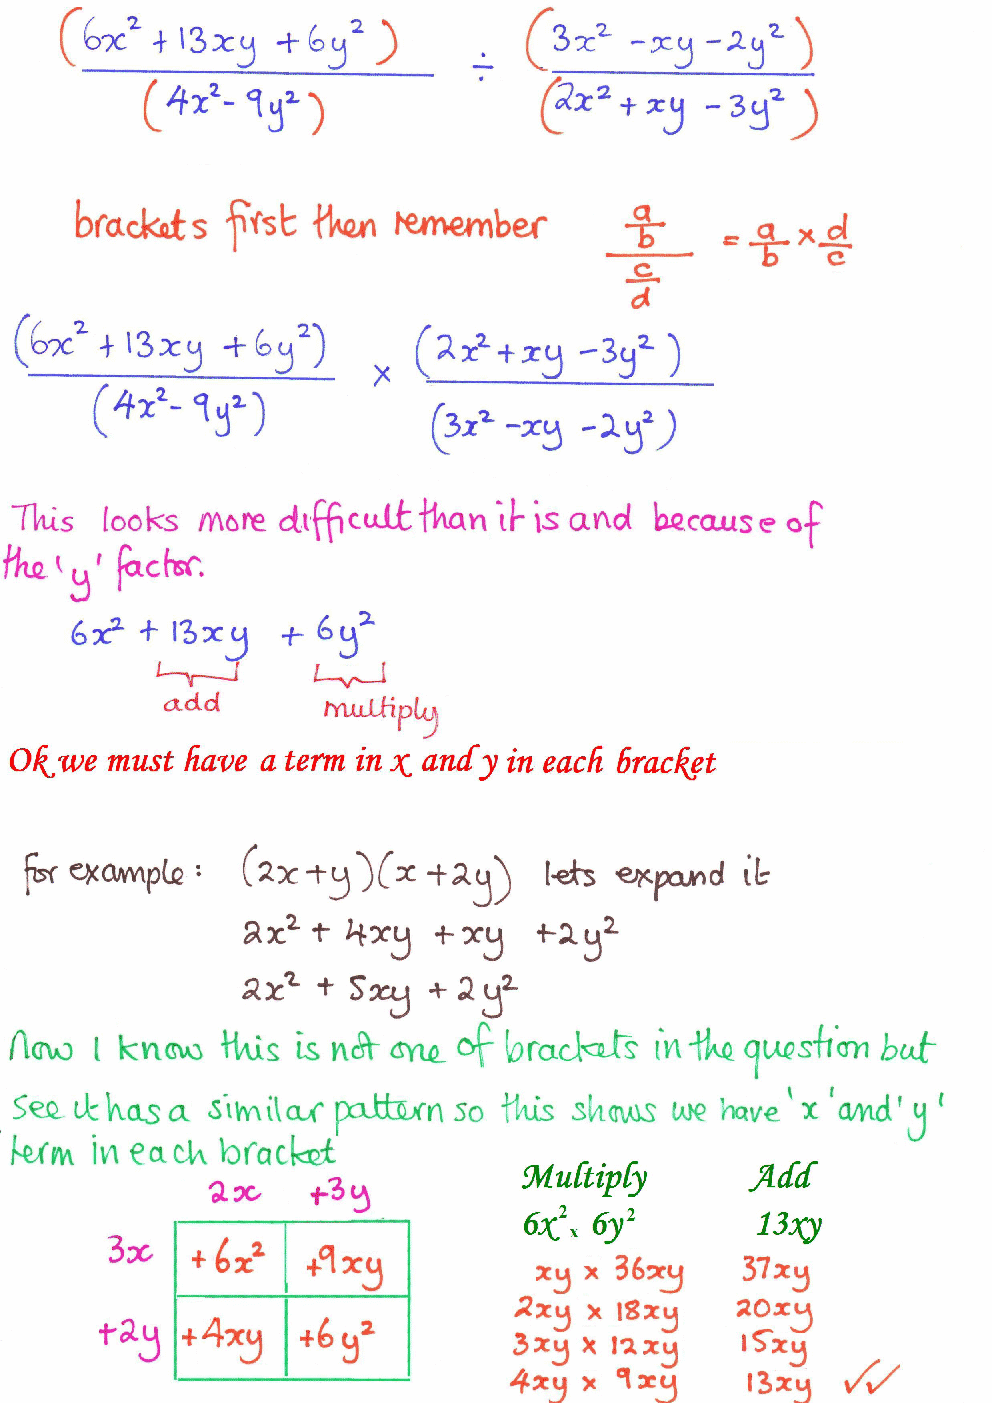 (6x² + 13xy + 6y²) ÷ (3x² - xy - 2y²)
(4x² - 9y²) (2x² + xy - 3y²)
brackets first then remember a/b / c/d = a/b × d/c
(6x² + 13xy + 6y²) × (2x² + xy - 3y²)
(4x² - 9y²) (3x² - xy - 2y²)
This looks more difficult than it is and because of
the 'y' factor.
6x² + 13xy + 6y²
add multiply
Ok we must have a term in x and y in each bracket
for example: (2x+y)(x+2y) lets expand it
2x² + 4xy + xy + 2y²
2x² + 5xy + 2y²
Now I know this is not one of brackets in the question but
see it has a similar pattern so this shows we have 'x' and 'y'
term in each bracket
2x +3y
3x +6x² +9xy
+2y +4xy +6y²
Multiply Add
6x² x 6y² 13xy
xy × 36xy 37xy
2xy × 18xy 20xy
3xy × 12xy 15xy
4xy × 9xy 13xy ✓✓